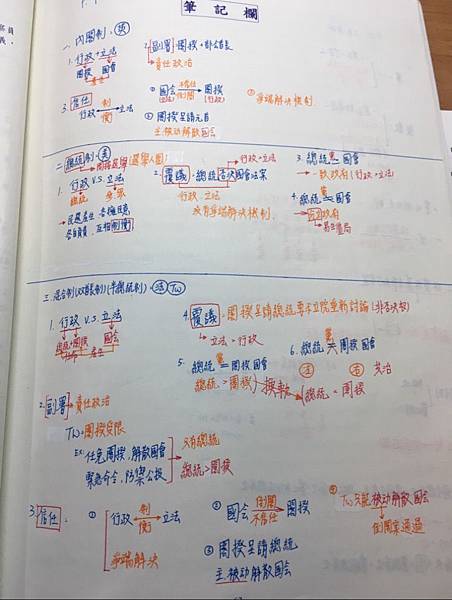 筆記欄
一、內閣制：英
1. 行政+立法
閣揆 國會
2. 副署：閣揆+部會首長
責任政治
3. 信任
行政 制衡 立法
① 國會 不信任 倒閣 閣揆
(立法) (行政)
② 閣揆呈請元首
主.被動解散國會
③ 爭端解決機制
二、總統制：美(選舉人團)
1. 行政 V.S. 立法
總統
→民選產生，各擁民意
各自負責，互相制衡
2. 覆議：總統否決國會法案
→行政>立法
行政 立法
沒有爭端解決機制
3. 總統黨=國會
→一致政府(行政>立法)
4. 總統黨≠國會
→分立政府
→易生僵局
三、混合制(双首長制)(半總統制)：法 TW
1. 行政 V.S. 立法
總統+閣揆 國會
2. 副署 責任政治
TW:閣揆受限
Ex: 任免閣揆、解散國會
緊急命令、防禦公投
只有總統
總統>閣揆
3. 信任：
① 行政 制衡 立法
爭端解決
② 國會 倒閣 不信任 閣揆
③ 閣揆呈請總統
主.被動解散國會
④ TW只能被動解散國會
倒閣案通過
4. 覆議：閣揆呈請總統要求立院重新討論(非否決权)
→立法>行政
5. 總統黨=閣揆 國會
總統>閣揆
6. 總統黨≠閣揆 國會
法 左 右 共治
換軌
總統<閣揆